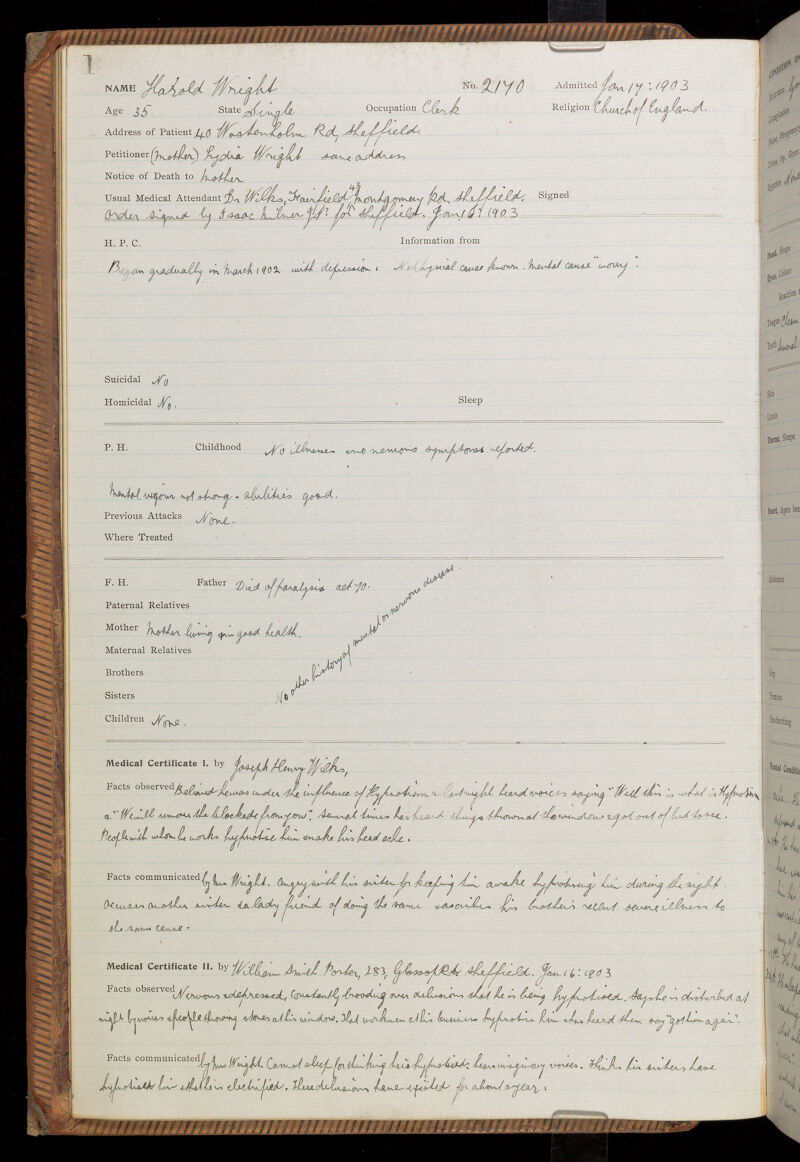 1
NAME Harold Wright No. 2170 Admitted Jan 17: 1903
Age 35 State Single Occupation Clerk Religion Church of England.
Address of Patient 40 Wostenholm Rd, Sheffield.
Petitioner (mother) Lydia Wright same address
Notice of Death to mother
Usual Medical Attendant Dr Wilks, Fairfield 47 Montgomery Rd, Sheffield. Signed
Order signed by Isaac Milner J.P. for Sheffield. Jan 16: 1903
H. P. C. Information from
Began gradually in March 1902 with depression. No physical cause known. Mental cause "worry".
Suicidal No
Homicidal No. Sleep
P. H. Childhood No illnesses and no nervous symptoms reported.
Mental vigour not strong - abilities good.
Previous Attacks None.
Where Treated
F. H. Father Died of paralysis aet 70.
Paternal Relatives
Mother Mother living & in good health.
Maternal Relatives
Brothers
Sisters
No other history of mental or nervous disease.
Children None.
Medical Certificate I. by Joseph Henry Wilks,
Facts observed Believed he was under the influence of Hypnotism & last night heard voices saying "Well this is what is Hypnotism
& "We will remove the blockade from you". Several times has heard things thrown at the window & got out of bed to see.
People with whom he works hypnotise him & make his head ache.
Facts communicated by Mrs Wright. Angry with his sister for keeping him awake hypnotising him during the night.
Accuses another sister & a lady friend of doing the same & ascribes his brother's recent severe illness to
the same cause.
Medical Certificate II. by William Smith Porter, 283, Glossop Rd Sheffield. Jan 16: 1903
Facts observed Nervous & depressed, Constantly brooding over delusions that he is being hypnotised. Says he is disturbed at
night by voices & people throwing stones at his window. That workmen at his business hypnotise him & has heard them say "got him again".
Facts communicated by Mrs Wright. Cannot sleep for thinking he is hypnotised: hears imaginary voices. Thinks his sisters have
hypnotised him & that he is electrified. These delusions have existed for about a year.